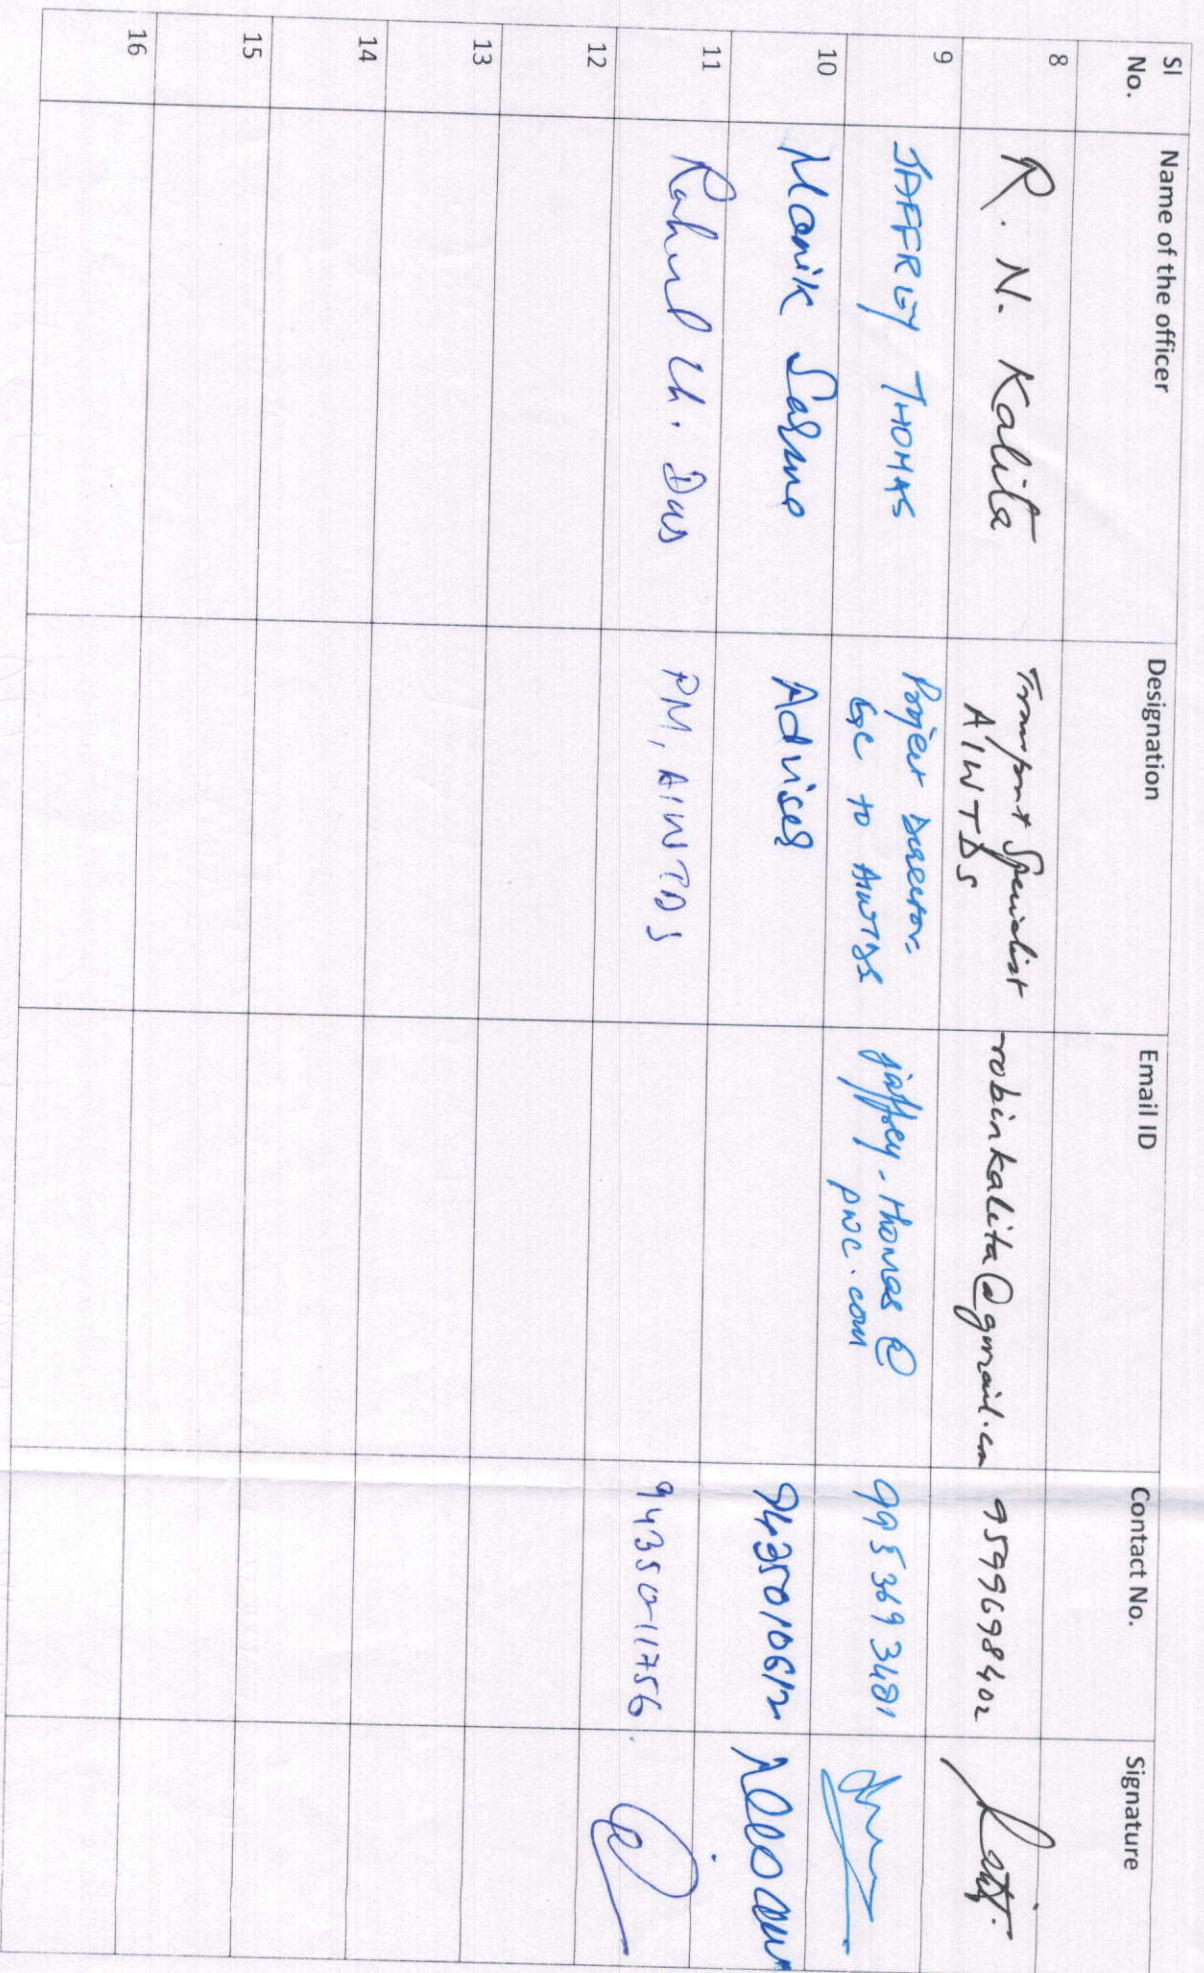 Sl No. Name of the officer Designation Email ID Contact No. Signature
8 R. N. Kalita Transport Specialist robinkalita@gmail.com 9599698402
AIWTDS
9 JAFFREY THOMAS Project Director jaffrey.thomas@ 9953693481
to AIWTDS pwc.com
10 Manik Sarma Adviser 9435010612
11 Rahul Ch. Das PM, AIWTDS 9435011756.
12
13
14
15
16